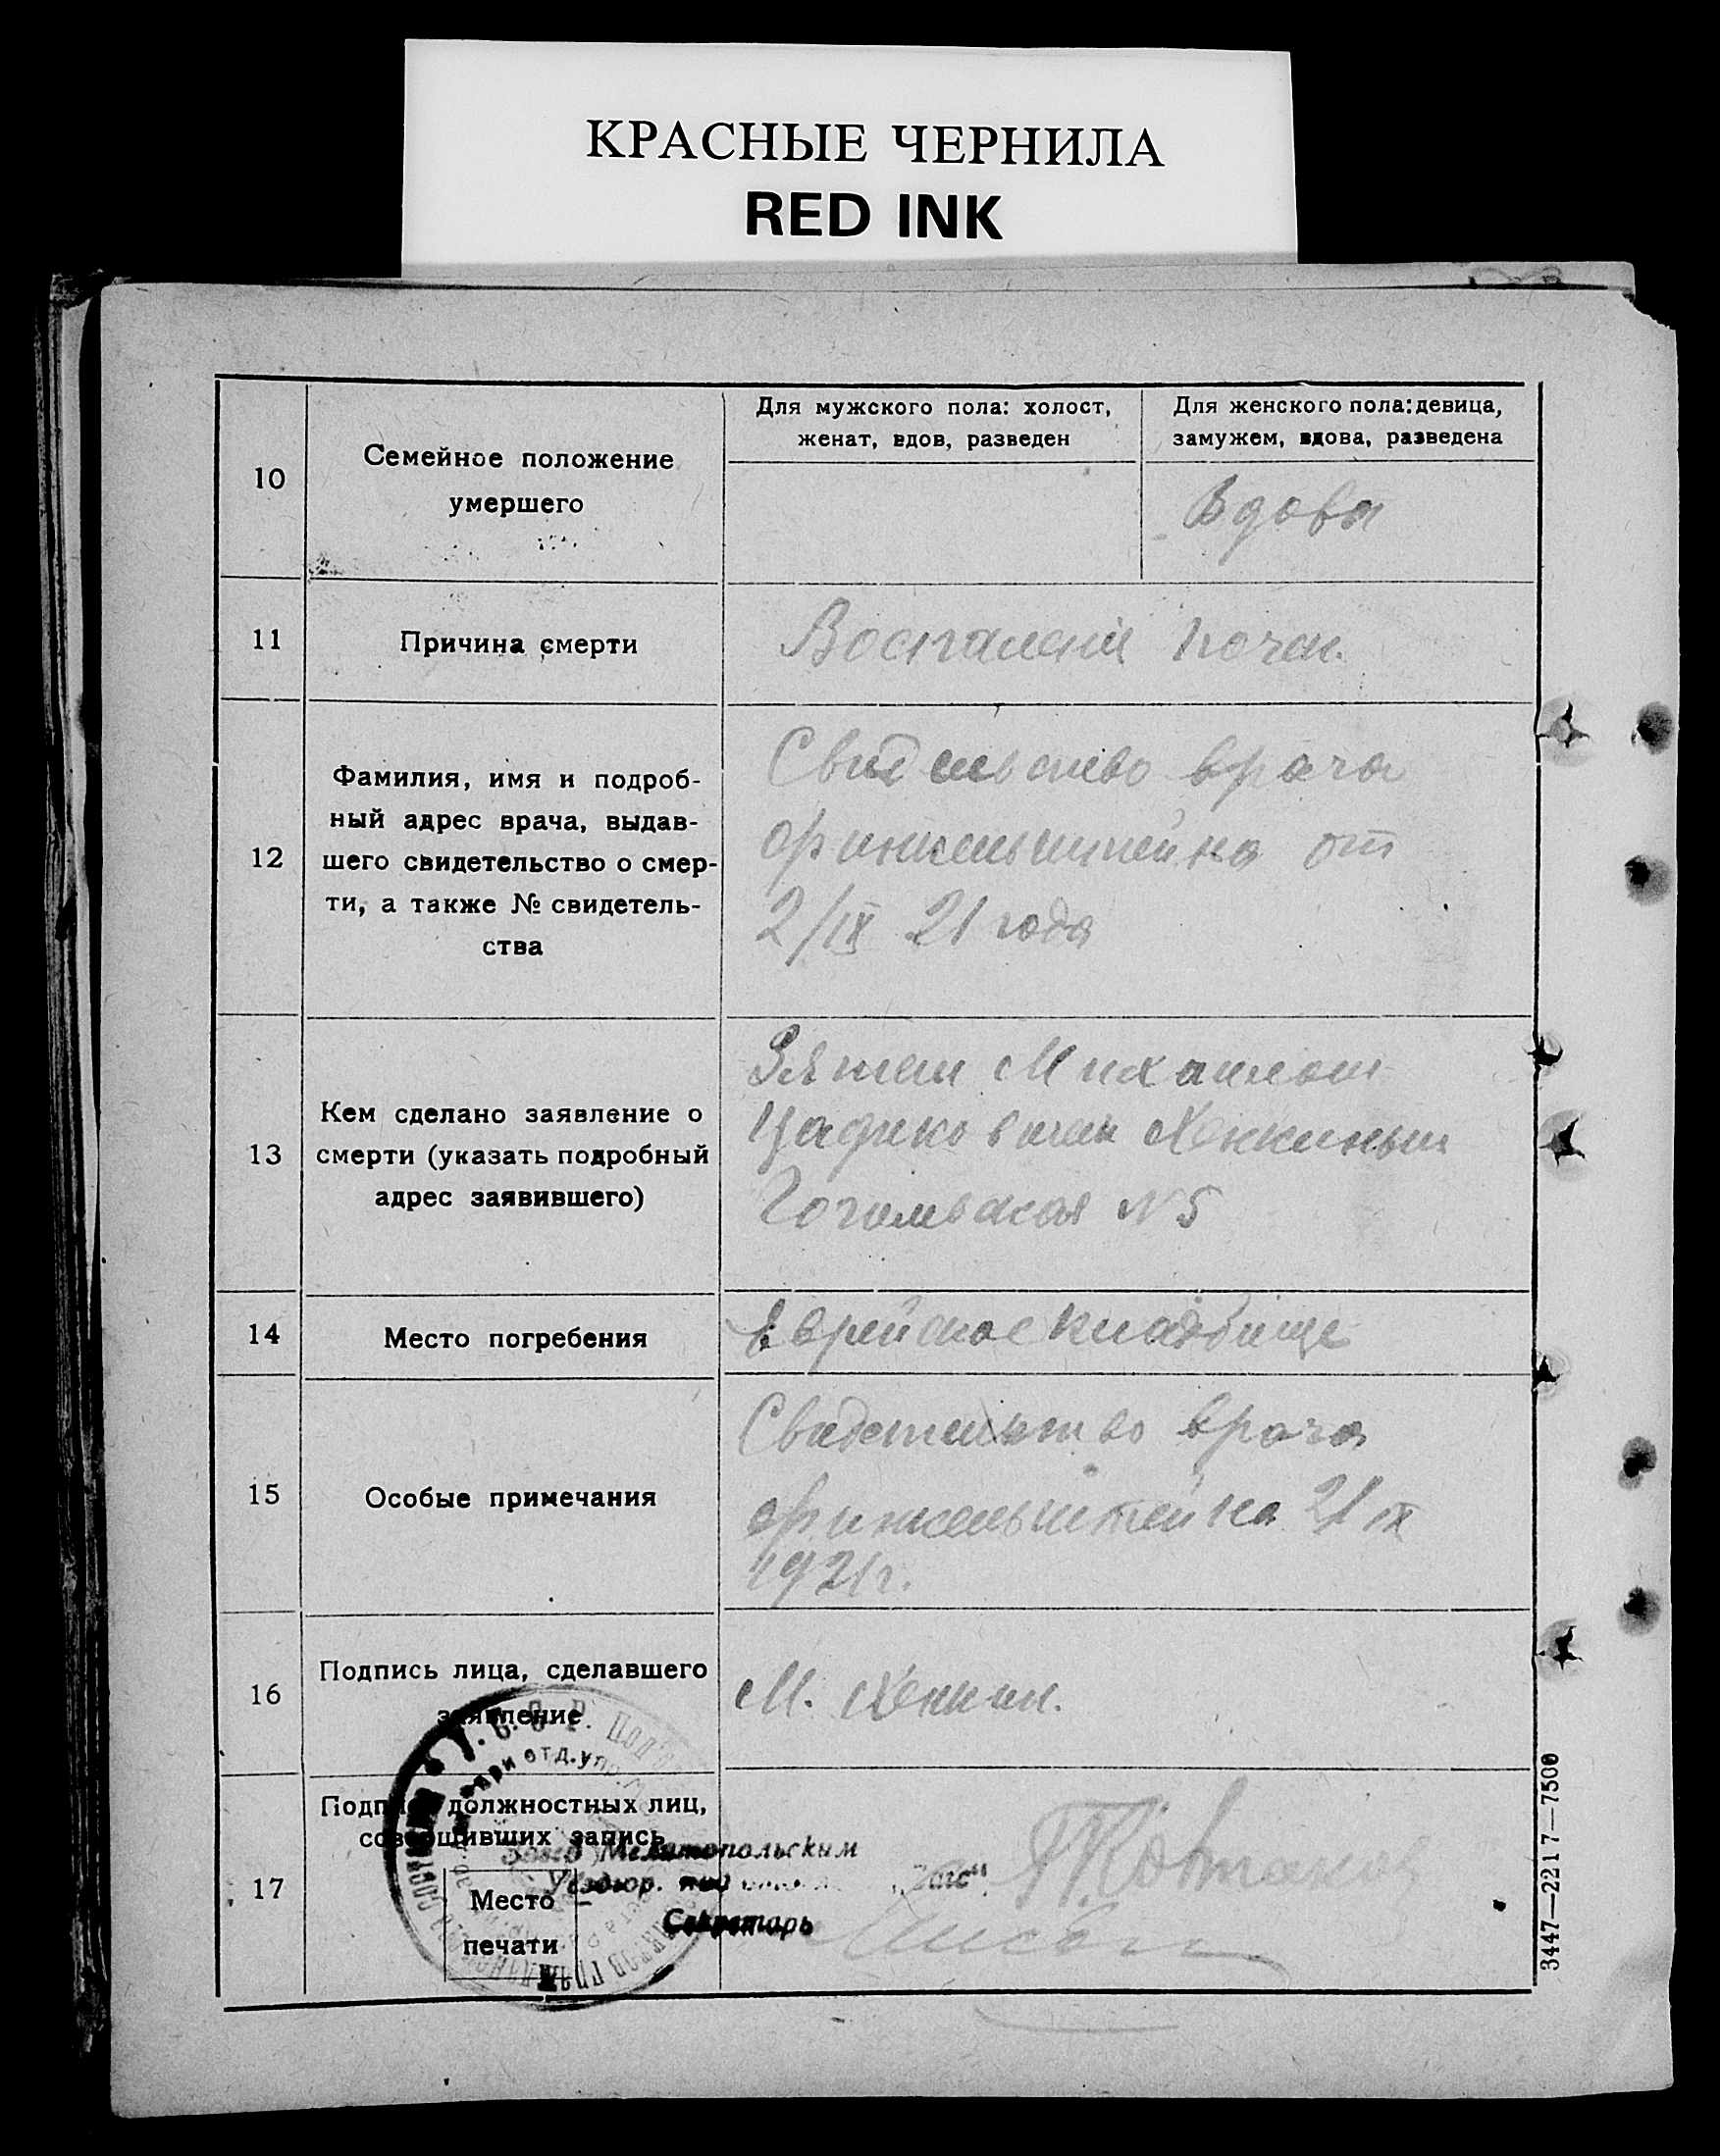 КРАСНЫЕ ЧЕРНИЛА
RED INK
10
Семейное положение
умершего
Для мужского пола: холост,
женат, вдов, разведен
Для женского пола: девица,
замужем, вдова, разведена
Вдова
11
Причина смерти
Воспаление почек.
12
Фамилия, имя и подроб-
ный адрес врача, выдав-
шего свидетельство о смер-
ти, а также № свидетель-
ства
врача
Финкельштейна от
2/IX 21 года
13
Кем сделано заявление о
смерти (указать подробный
адрес заявившего)
Зятем Михаилом
Цадиковичем Хенкиным
Гогольвская N 5
14
Место погребения
Еврейское кладбище
15
Особые примечания
Свидетельство врача
Финкельштейна 2/IX
1921г.
16
Подпись лица, сделавшего
заявление
М. Хенкин.
17
Подпись должностных лиц,
совершивших запись
Место
печати
Мелитопольским
Секретарь
3447—2217—7500